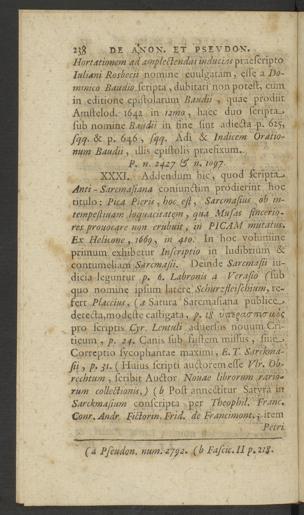 238 DE ANON. ET PSEVDON.
Hortationem ad amplectendas inducias praescripto
Iuliani Rosbecii nomine euulgatam, esse a Do-
minico Baudio scripta, dubitari non potest, cum
in editione epistolarum Baudii, quae prodiit
Amstelod. 1642 in 12mo, haec duo scripta
sub nomine Baudii in fine sint adiecta p. 625,
sqq. & p. 646, sqq. Adi & Indicem Oratio-
num Baudii, illis epistolis praefixum.
P. n. 2427 & n. 1097.
XXXI. Addendum hic, quod scripta
Anti-Sarcmasiana coniunctim prodierint hoc
titulo: Pica Pieris, hoc est, Sarcmasius ob in-
tempestiuam loquacitatem, qua Musas sincerio-
res prouocare non erubuit, in PICAM mutatus.
Ex Helicone, 1669, in 4to. In hoc volumine
primum exhibetur Inscriptio in ludibrium &
contumeliam Sarcmasii. Deinde Sarcmasii iu-
dicia leguntur p. 6. Labronis a Verasio (sub
quo nomine ipsum latere Schurzfleischium, re-
fert Placcius, (a Satura Sarcmasiana publice
detecta, modeste castigata, p. 18
pro scriptis Cyr. Lentuli aduersus nouum Cri-
ticum, p. 24. Canis sub fustem missus, siue
Correptio sycophantae maximi, E. T. Sarckma-
sii, p. 31. (Huius scripti auctorem esse Vlr. Ob-
rechtum, scribit Auctor Nouae librorum rario-
rum collectionis.) (b Post annectitur Satyra in
Sarckmasium conscripta per Theophil. Franc.
Conr. Andr. Fictorin. Frid. de Francimont.; item
Petri
(a Pseudon. num. 2792. (b Fascic. II p. 218.